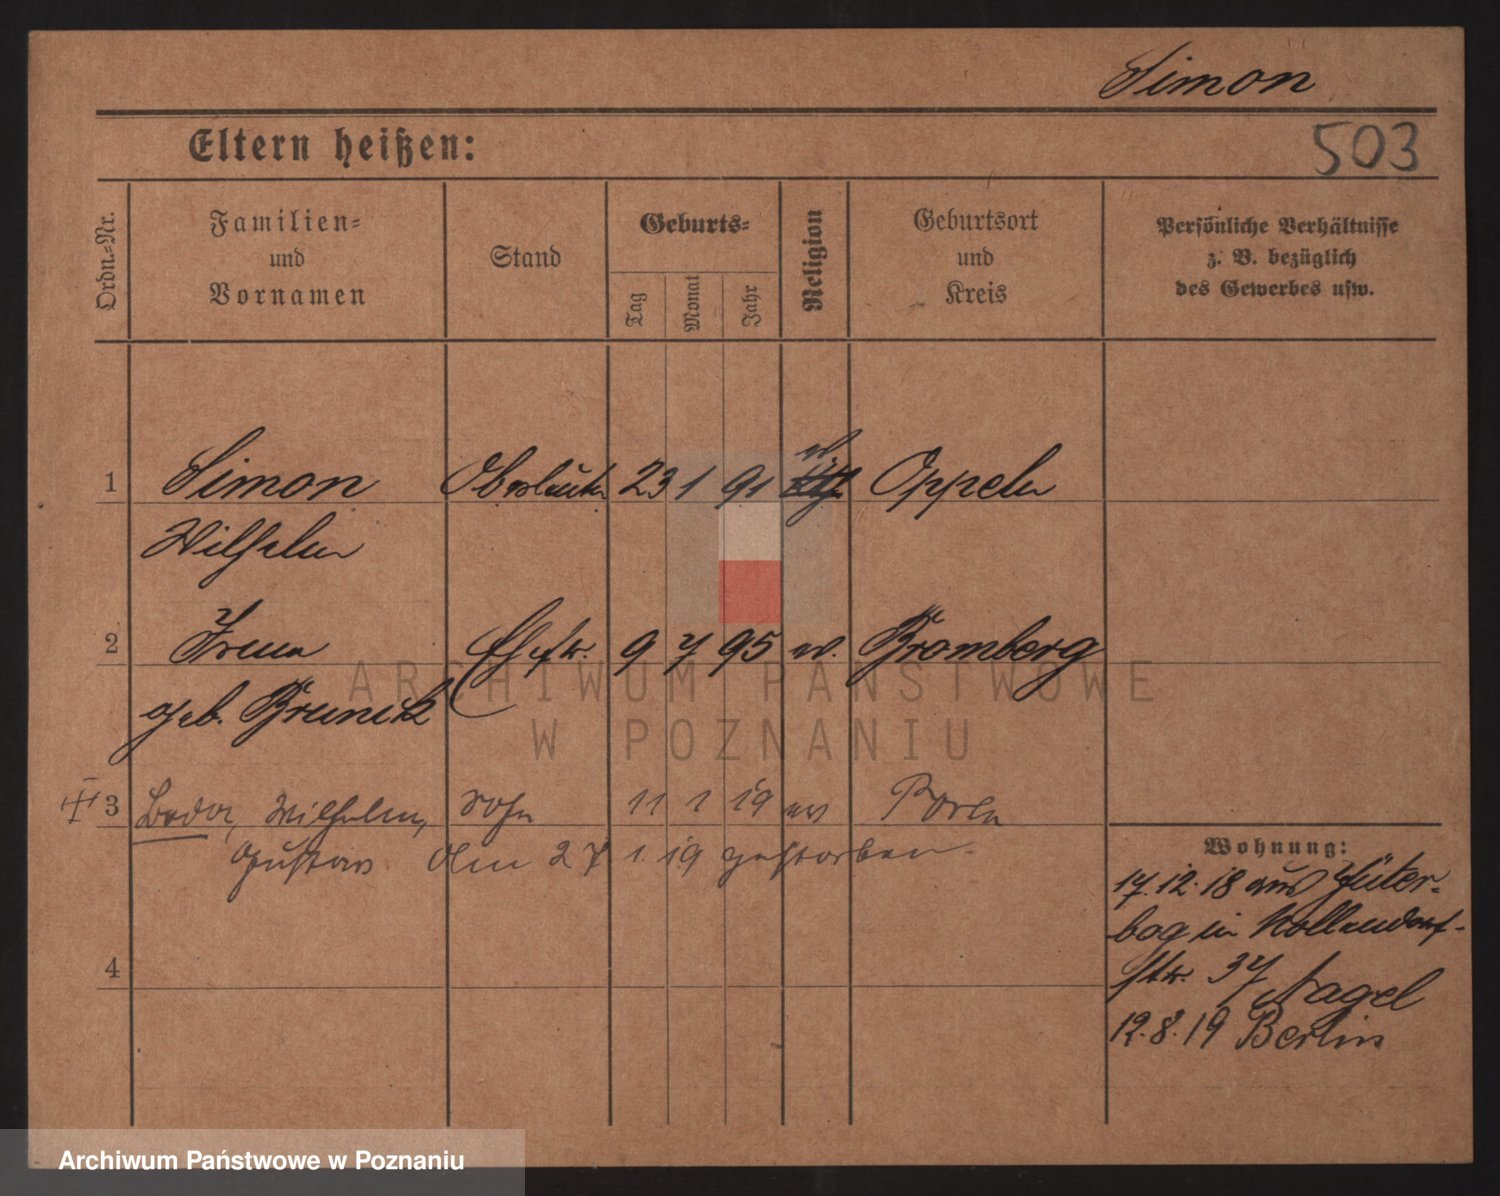 Simon
Eltern heißen:
503
Ordn.=Nr.
Familien=
und
Vornamen
Stand
Geburts=
Tag
Monat
Jahr
Religion
Geburtsort
und
Kreis
Persönliche Verhältnisse
z. B. bezüglich
des Gewerbes usw.
1 Simon 23 1 91 ev. Oppeln
Wilhelm
2 Irena Ehefr. 9 7 95 ev. Bromberg
geb.
3 Wilhelm, Sohn 11 1 19 ev Posen
Gustav Am 27 1. 19 gestorben.
4
Wohnung:
17.12.18 aus Jüter-
bog in Hollendorf-
str. 37 Nagel
12.8.19 Berlin
ARCHIWUM PAŃSTWOWE
W POZNANIU
Archiwum Państwowe w Poznaniu